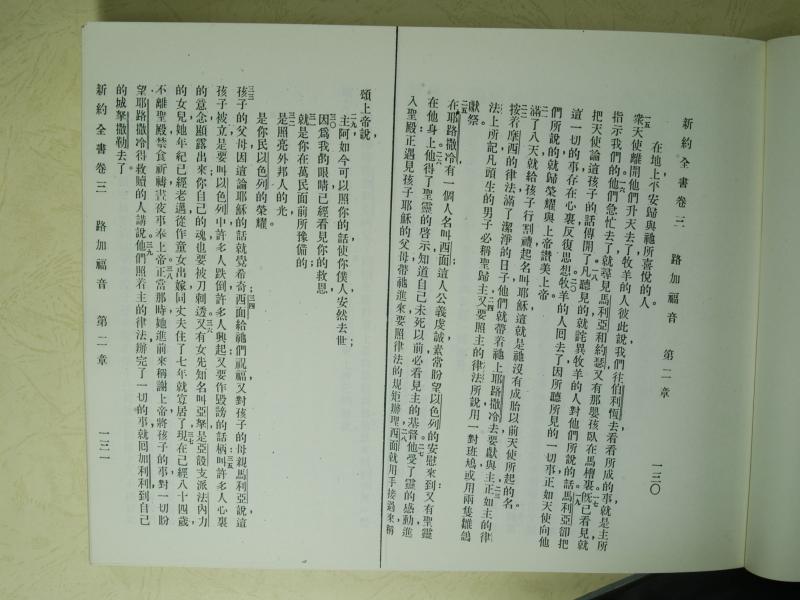 新約全書卷三　路加福音　第二章　一三〇
在地上平安歸與祂所喜悅的人
一五 衆天使離開他們升天去了牧羊的人彼此說我們往伯利恆去看看所成的事就是主所
指示我們的一六 他們急忙去了就尋見馬利亞和約瑟又有那嬰孩臥在馬槽裏一七 旣已看見就
把天使論這孩子的話傳開了一八 凡聽見的就詫異牧羊的人對他們所說的話一九 馬利亞卻把
這一切的事存在心裏反復思想二〇 牧羊的人回去了因所聽所見的一切事正如天使向他
們所說的就歸榮耀與上帝讚美上帝
二一 滿了八天就給孩子行割禮起名叫耶穌這就是祂沒有成胎以前天使所起的名
二二 按着摩西的律法滿了潔淨的日子他們就帶着祂上耶路撒冷去要獻與主二三 正如主的律
法上所記凡頭生的男子必稱聖歸主二四 又要照主的律法所說用一對班鳩或用兩隻雛鴿
獻祭
二五 在耶路撒冷有一個人名叫西面這人公義虔誠素常盼望以色列的安慰來到又有聖靈
在他身上二六 他得了聖靈的啓示知道自己未死以前必看見主的基督二七 他受了靈的感動進
入聖殿正遇見孩子耶穌的父母帶祂進來要照律法的規矩辦理二八 西面就用手接過來稱
頌上帝說
二九 主阿如今可以照你的話使你僕人安然去世
三〇 因爲我的眼睛已經看見你的救恩
三一 就是你在萬民面前所豫備的
三二 是照亮外邦人的光
是你民以色列的榮耀
三三 孩子的父母因這論耶穌的話就覺希奇三四 西面給祂們祝福又對孩子的母親馬利亞說這
孩子被立是要叫以色列中許多人跌倒許多人興起又要作毀謗的話柄三五 叫許多人心裏
的意念顯露出來你自己的魂也要被刀刺透三六 又有女先知名叫亞拏是亞設支派法內力
的女兒她年紀已經老邁從作童女出嫁同丈夫住了七年就寡居了三七 現在已經八十四歲
不離聖殿禁食祈禱晝夜事奉上帝三八 正當那時她進前來稱謝上帝將孩子的事對一切盼
望耶路撒冷得救贖的人講說三九 他們照着主的律法辦完了一切的事就回加利利到自己
的城拏撒勒去了
新約全書卷三　路加福音　第二章　一三一